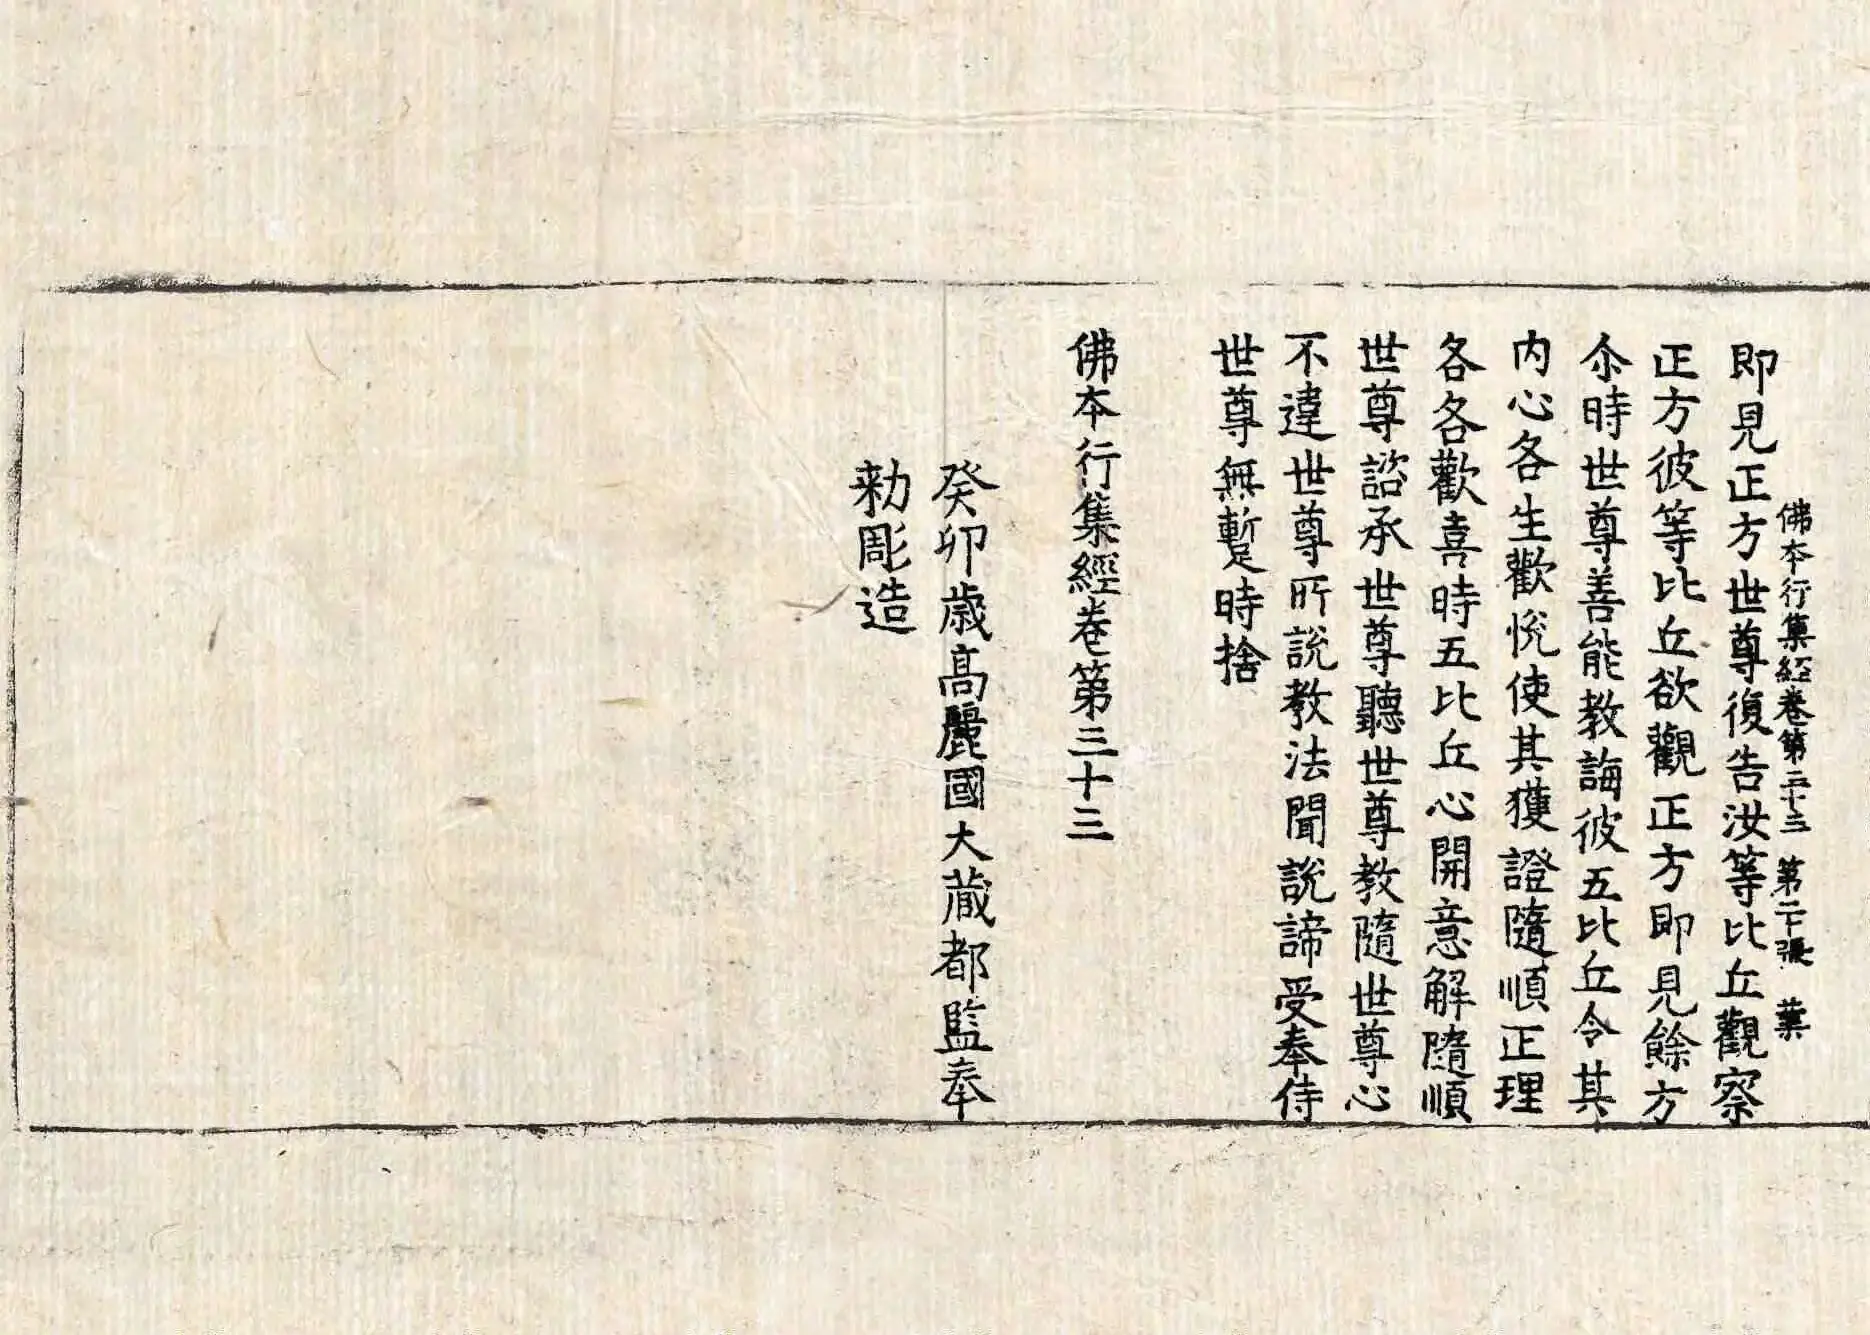 佛本行集經卷第三十三 第二十張 葉
即見正方世尊復告汝等比丘觀察
正方彼等比丘欲觀正方即見餘方
尒時世尊善能教誨彼五比丘令其
内心各生歡悅使其獲證隨順正理
各各歡喜時五比丘心開意解隨順
世尊諮承世尊聽世尊教隨世尊心
不違世尊所說教法聞說諦受奉侍
世尊無暫時捨
佛本行集經卷第三十三
癸卯歲高麗國大藏都監奉
勑彫造